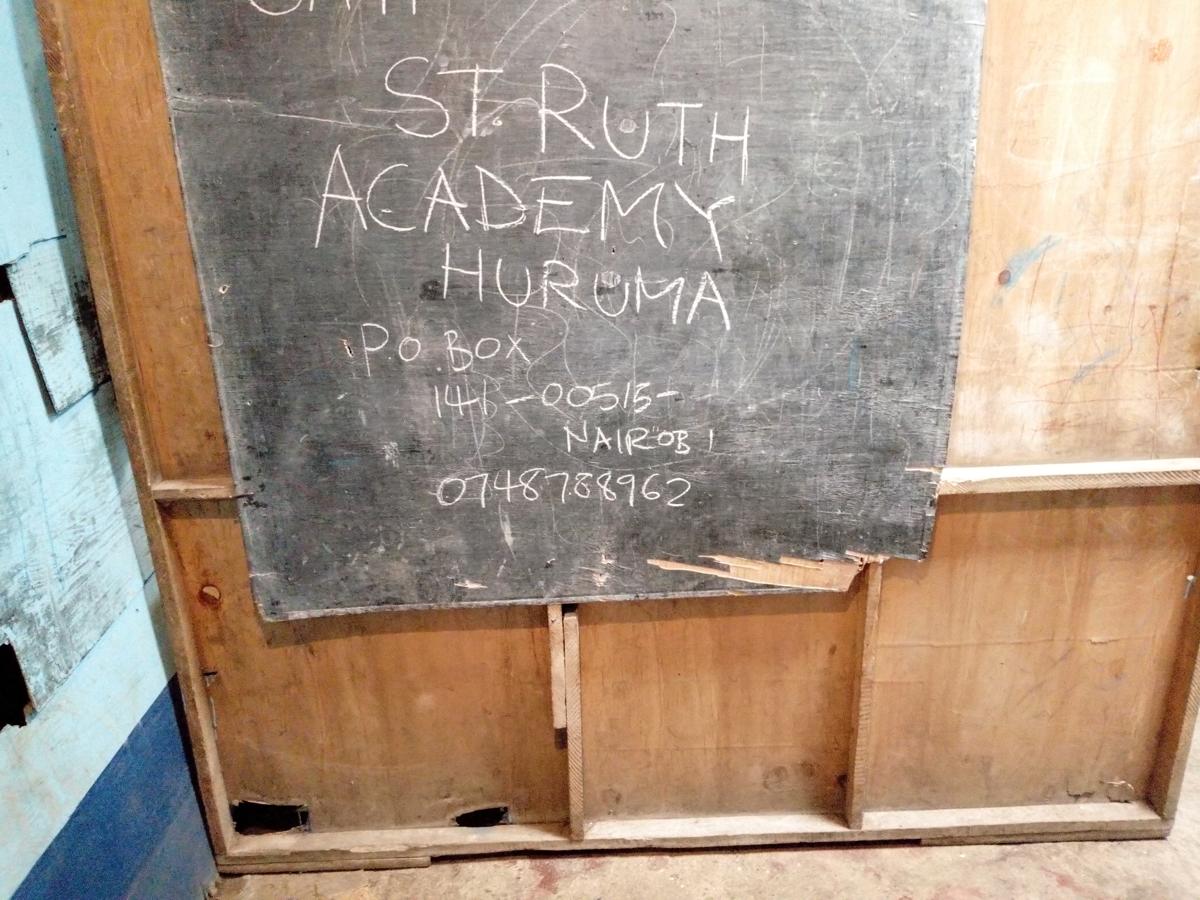 ST. RUTH
ACADEMY
HURUMA
P.O. BOX
NAIROBI
0748788962